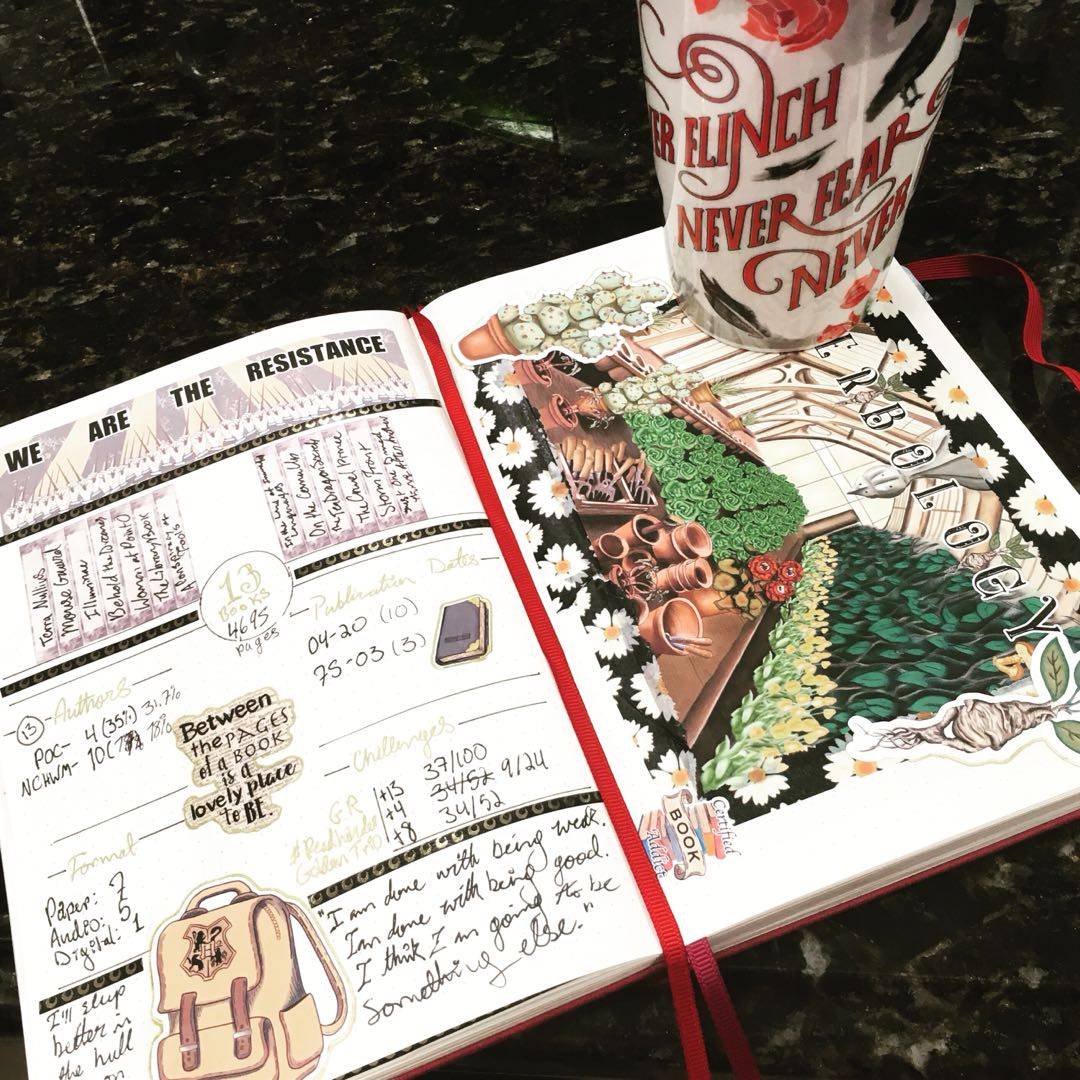 ER FLINCH
NEVER FEAR
NEVER
WE ARE THE RESISTANCE
Terra Nullius
Mouse Guard
Illuminae
Behold the Dreamers
Woman at Point 0
The Library Book
A Conspiracy of Truths
On the Come Up
The Cruel Prince
Storm Front
13
BOOKS
4695
pages
Publication Dates
04-20 (10)
75-03 (3)
Authors
13
POC- 4 (35%) 31.7%
NCHWM- 10 78%
Between
the PAGES
of a BOOK
is a
lovely place
to BE.
Challenges
G.R +13 37/100
Readharder +4 34/52 9/24
Golden Trio +8 34/52
Format
Paper: 7
Audio: 5
Digital: 1
"I am done with being weak.
I am done with being good.
I think I am going to be
Something else."
I'll slup
better in
the hull
on
ERBOLOGY
Certified
BOOK
Addict